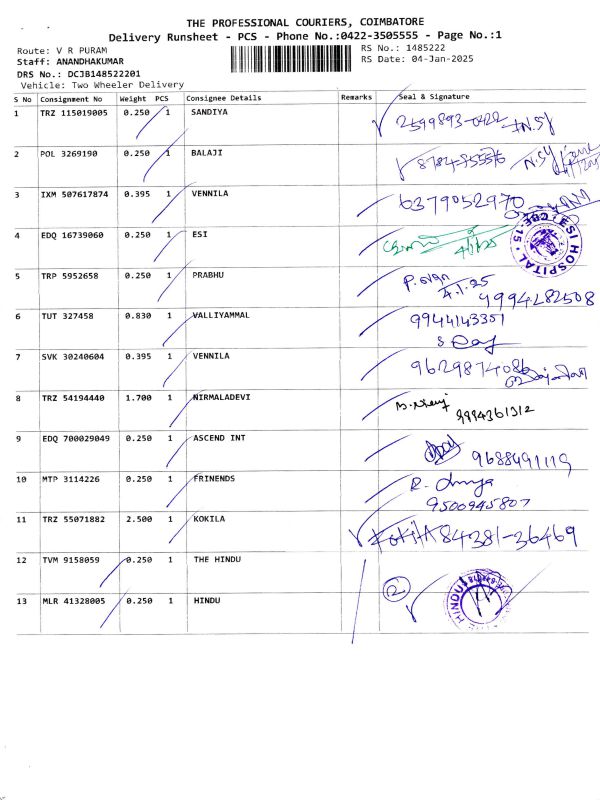 THE PROFESSIONAL COURIERS, COIMBATORE
Delivery Runsheet - PCS - Phone No.:0422-3505555 - Page No.:1
Route: V R PURAM
RS No.: 1485222
Staff: ANANDHAKUMAR
RS Date: 04-Jan-2025
DRS No.: DCJB148522201
Vehicle: Two Wheeler Delivery
S No Consignment No Weight PCS Consignee Details Remarks Seal & Signature
1 TRZ 115019005 0.250 1 SANDIYA 2599893-0422
2 POL 3269190 0.250 1 BALAJI
3 IXM 507617874 0.395 1 VENNILA 6379052970
4 EDQ 16739060 0.250 1 ESI 4/1/25 ESI HOSPITAL CBE-15
5 TRP 5952658 0.250 1 PRABHU 4.1.25
9994282508
6 TUT 327458 0.830 1 VALLIYAMMAL 9944143351
7 SVK 30240604 0.395 1 VENNILA 9629874086
8 TRZ 54194440 1.700 1 NIRMALADEVI 9994361312
9 EDQ 700029049 0.250 1 ASCEND INT 9688491119
10 MTP 3114226 0.250 1 FRINENDS R. Dhivya
9500945807
11 TRZ 55071882 2.500 1 KOKILA Kokila 84381-36469
12 TVM 9158059 0.250 1 THE HINDU
13 MLR 41328005 0.250 1 HINDU 2 HINDU